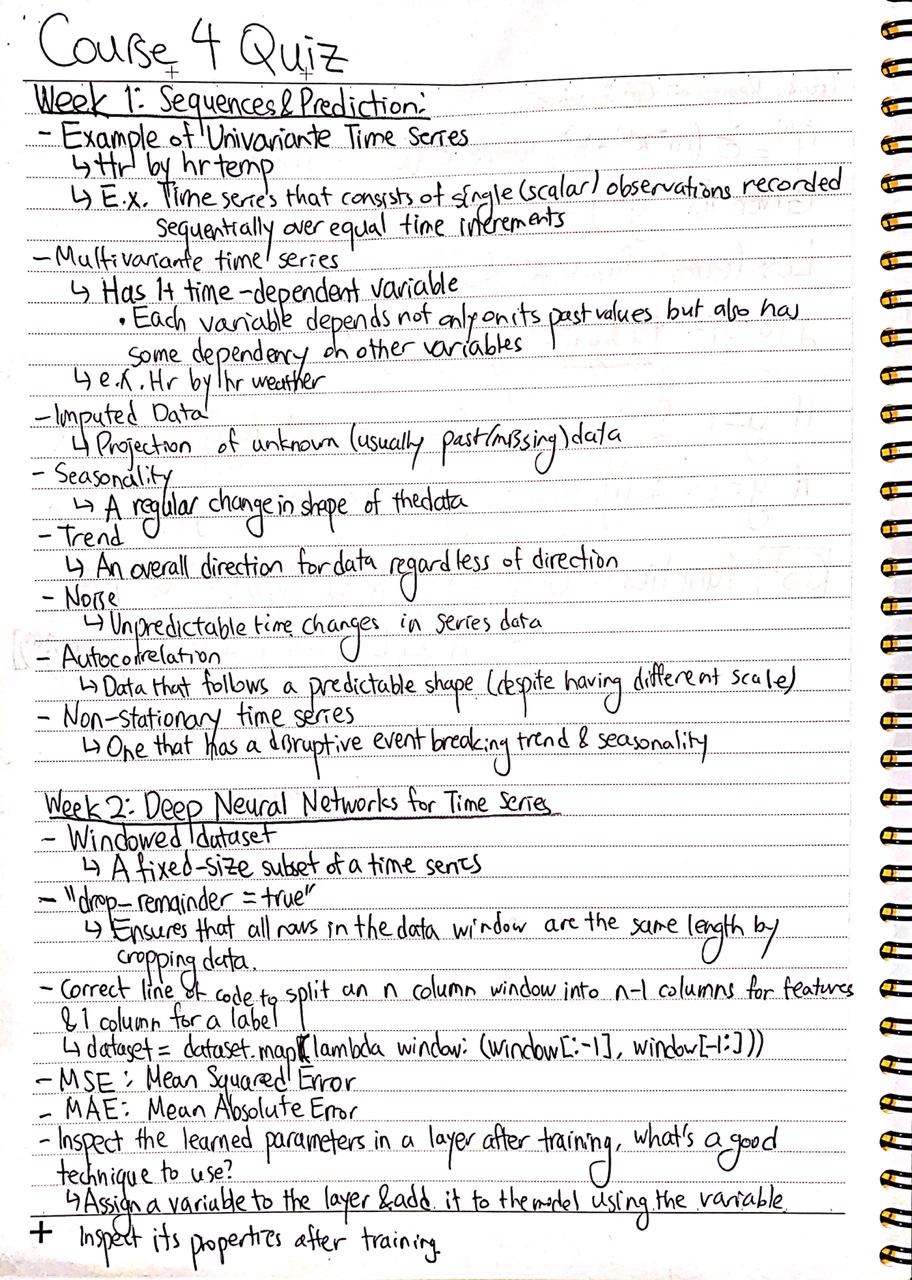 Course 4 Quiz
Week 1: Sequences & Prediction:
- Example of Univariante Time Series
↳ Hr by hr temp
↳ E.x. Time series that consists of single (scalar) observations recorded
sequentially over equal time increments
- Multivariante time series
↳ Has 1+ time-dependent variable
• Each variable depends not only on its past values but also has
some dependency on other variables
↳ e.x. Hr by hr weather
- Imputed Data
↳ Projection of unknown (usually past/missing) data
- Seasonality
↳ A regular change in shape of the data
- Trend
↳ An overall direction for data regardless of direction
- Noise
↳ Unpredictable time changes in series data
- Autocorrelation
↳ Data that follows a predictable shape (despite having different scale)
- Non-stationary time series
↳ One that has a disruptive event breaking trend & seasonality
Week 2: Deep Neural Networks for Time Series
- Windowed dataset
↳ A fixed-size subset of a time series
- "drop_remainder = true"
↳ Ensures that all rows in the data window are the same length by
cropping data.
- Correct line of code to split an n column window into n-1 columns for features
& 1 column for a label
↳ dataset = dataset.map(lambda window: (window[:-1], window[-1:]))
- MSE: Mean Squared Error
- MAE: Mean Absolute Error
- Inspect the learned parameters in a layer after training, what's a good
technique to use?
↳ Assign a variable to the layer & add it to the model using the variable
+ Inspect its properties after training.